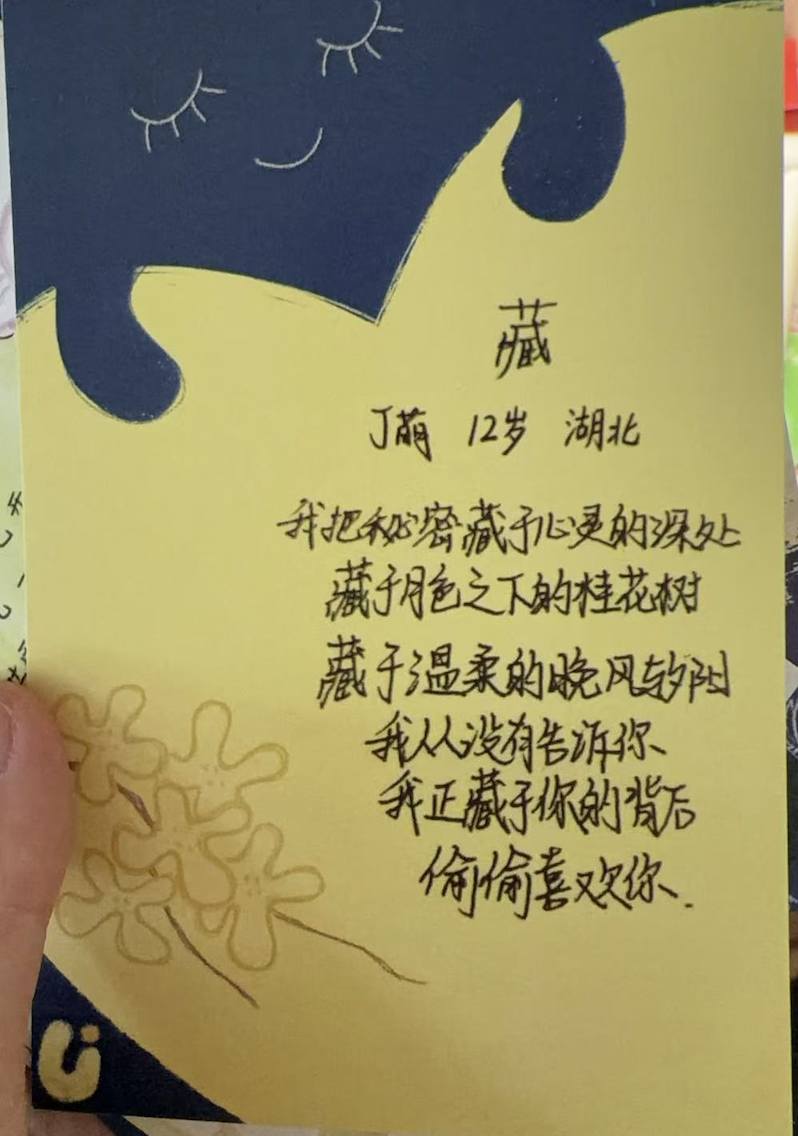 藏
丁萌 12岁 湖北
我把秘密藏于心灵的深处
藏于月色之下的桂花树
藏于温柔的晚风与夕阳
我从没有告诉你
我正藏于你的背后
偷偷喜欢你.